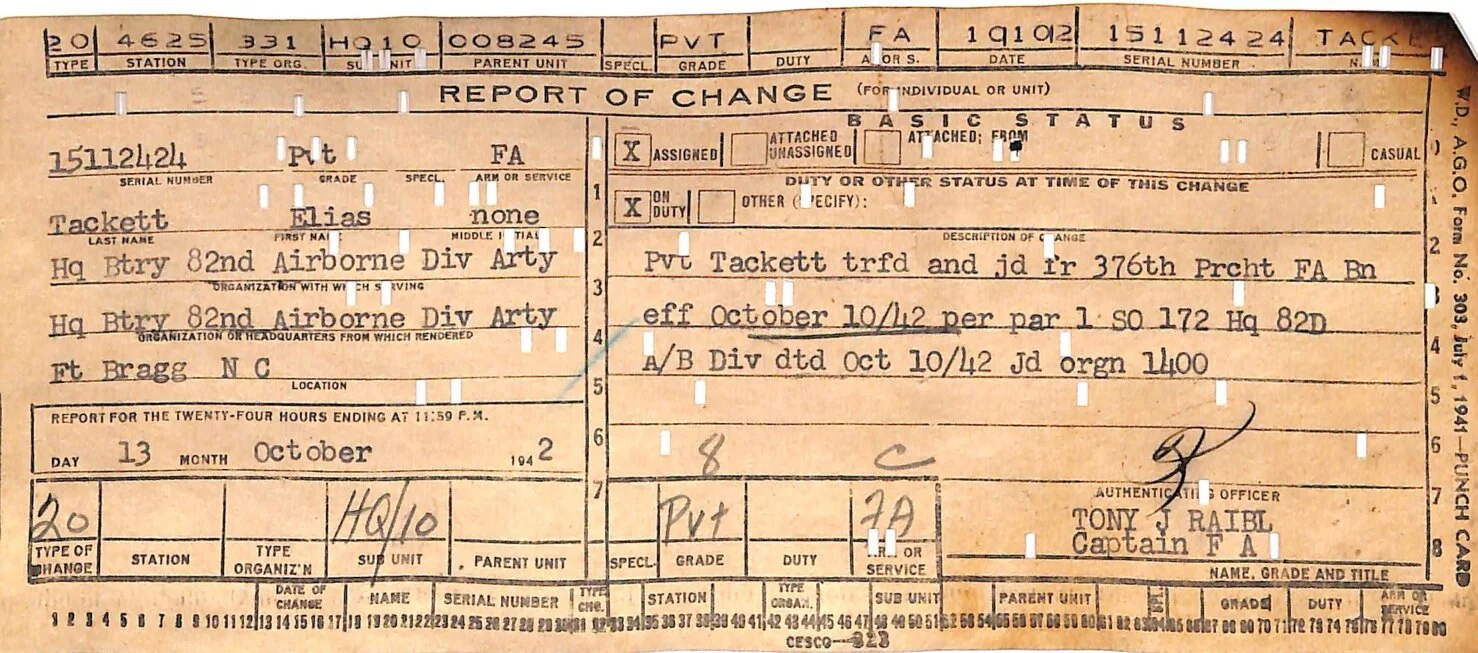 20 4625 331 HQ10 008245 PVT FA 19102 15112424 TACKE
TYPE STATION TYPE ORG. SUB UNIT PARENT UNIT SPECL GRADE DUTY A OR S. DATE SERIAL NUMBER
REPORT OF CHANGE (FOR INDIVIDUAL OR UNIT)
15112424 Pvt FA
SERIAL NUMBER GRADE SPECL. ARM OR SERVICE
Tackett Elias none
LAST NAME FIRST NAME MIDDLE INITIAL
Hq Btry 82nd Airborne Div Arty
ORGANIZATION WITH WHICH SERVING
Hq Btry 82nd Airborne Div Arty
ORGANIZATION OR HEADQUARTERS FROM WHICH RENDERED
Ft Bragg N C
LOCATION
REPORT FOR THE TWENTY-FOUR HOURS ENDING AT 11:59 P.M.
DAY 13 MONTH October 1942
BASIC STATUS
X ASSIGNED ATTACHED UNASSIGNED ATTACHED; FROM CASUAL
DUTY OR OTHER STATUS AT TIME OF THIS CHANGE
X ON DUTY OTHER (SPECIFY):
DESCRIPTION OF CHANGE
Pvt Tackett trfd and jd fr 376th Prcht FA Bn
eff October 10/42 per par 1 SO 172 Hq 82D
A/B Div dtd Oct 10/42 Jd orgn 1400
8 C
AUTHENTICATING OFFICER
TONY J RAIBL
Captain F A
NAME, GRADE AND TITLE
1
2
3
4
5
6
7
2
3
4
5
6
7
8
20 HQ/10 Pvt FA
TYPE OF CHANGE STATION TYPE ORGANIZ'N SUB UNIT PARENT UNIT SPECL. GRADE DUTY ARM OR SERVICE
DATE OF CHANGE NAME SERIAL NUMBER TYPE CHG. STATION TYPE ORGAN. SUB UNIT PARENT UNIT GRADE DUTY ARM OR SERVICE
1 2 3 4 5 6 7 8 9 10 11 12 13 14 15 16 17 18 19 20 21 22 23 24 25 26 27 28 29 30 31 32 33 34 35 36 37 38 39 40 41 42 43 44 45 46 47 48 49 50 51 52 53 54 55 56 57 58 59 60 61 62 63 64 65 66 67 68 69 70 71 72 73 74 75 76 77 78 79 80
CESCO—323
W.D., A.G.O. Form No. 303, July 1, 1941—PUNCH CARD